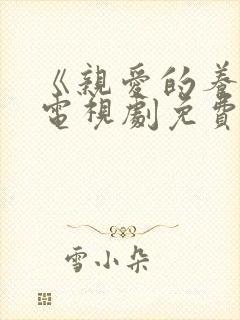 《親愛的養
電視劇免費
雪小朵